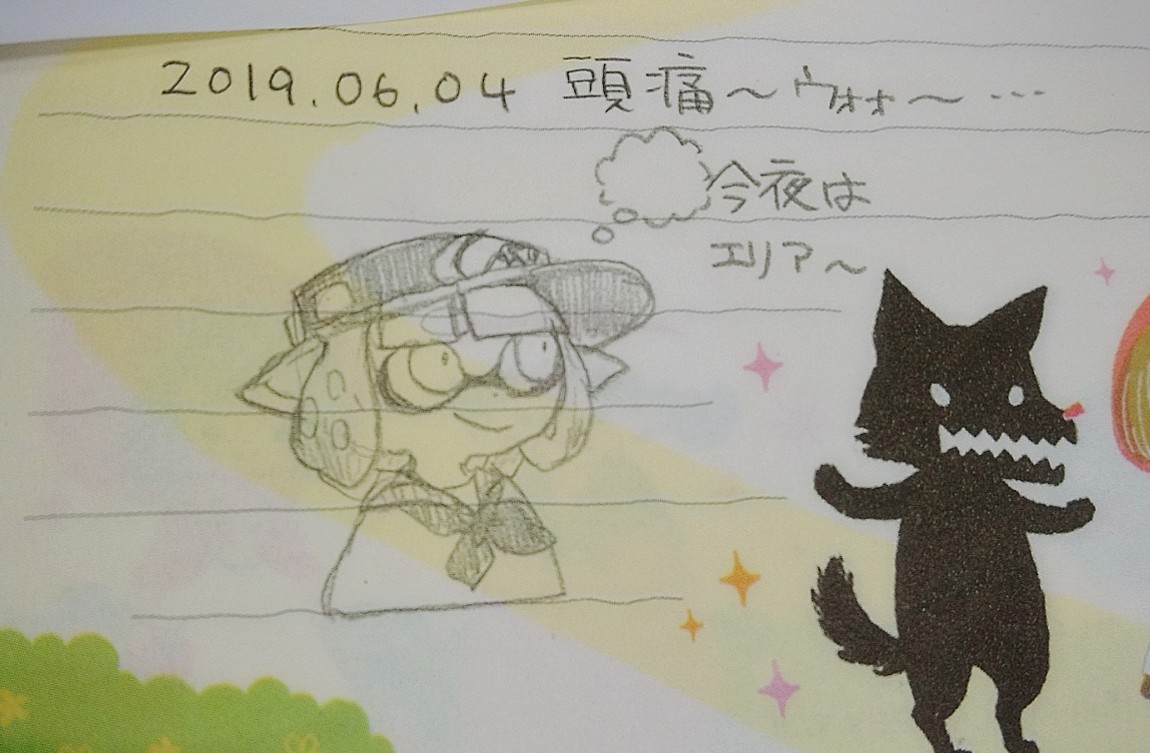 2019.06.04 頭痛～ウォォ～…
今夜は
エリア～